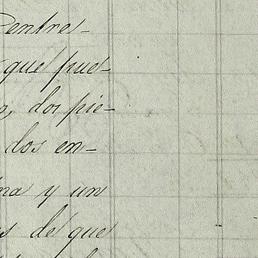 entre-
que pue-
, dos pie-
dos en-
na y un
s de que